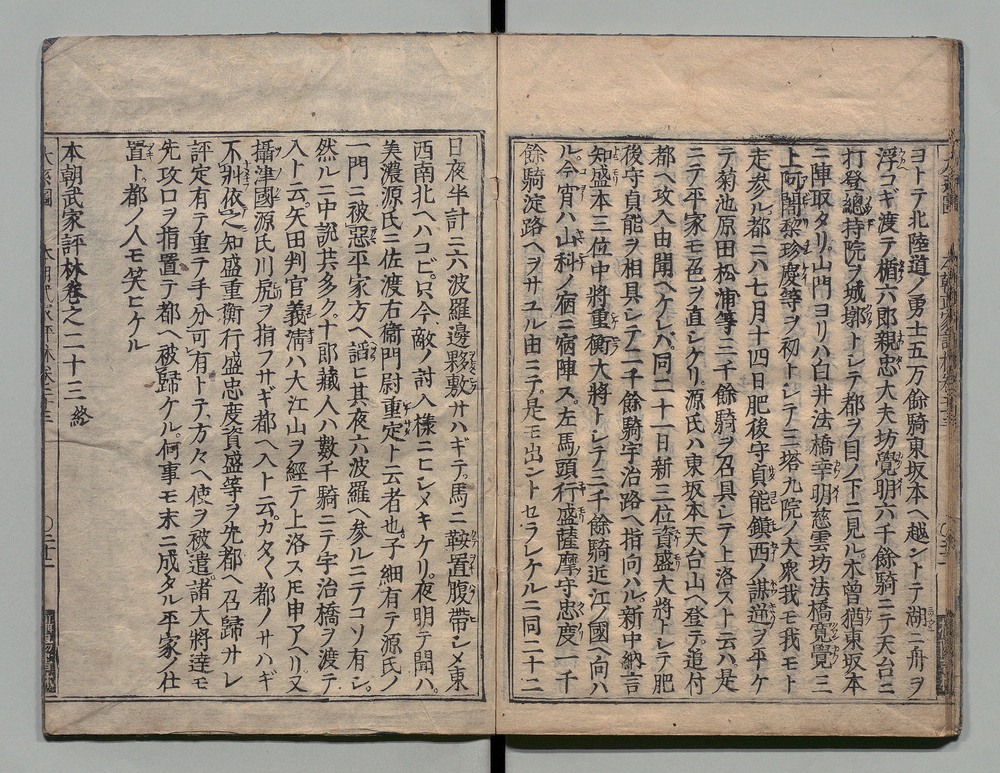 ヨトテ北陸道ノ勇士五万余騎東坂本ヘ越ントテ湖ニ舟ヲ
浮コギ渡テ楯六郎親忠大夫坊覺明六千餘騎ニテ天台ニ
打登總持院ヲ城墎トシテ都ヲ目ノ下ニ見ル木曾猶東坂本
ニ陣取タリ山門ヨリハ白井法橋幸明慈雲坊法橋寛覺三
上阿闍梨珍慶等ヲ初トシテ三塔九院ノ大衆我モ我モト
走参ル都ニハ七月十四日肥後守貞能鎭西ノ謀逆ヲ平ケ
テ菊池原田松浦等三千餘騎ヲ召具シテ上洛スト云ハ是
ニテ平家モ色ヲ直シケリ源氏ハ東坂本天台山ヘ登テ追付
都ヘ攻入由聞ヘケレバ同二十一日新三位資盛大将トシテ肥
後守貞能ヲ相具シテ二千餘騎宇治路ヘ指向ハル新中納言
知盛本三位中將重衡大將トシテ三千餘騎近江ノ國ヘ向ハ
ル今宵ハ山科ノ宿ニ宿陣ス左馬頭行盛薩摩守忠度一千
餘騎淀路ヘヲサユル由ニテ是モ出ントセラレケルニ同二十二
日夜半計ニ六波羅邊夥敷サハギテ馬ニ鞍置腹帶シメ東
西南北ヘハコビ只今敵ノ討入様ニヒシメキケリ夜明テ聞ハ
美濃源氏ニ佐渡右衞門尉重定ト云者也子細有テ源氏ノ
一門ニ被惡平家方ヘ謟ヒ其夜六波羅ヘ参ルニテコソ有シ
然ルニ中説共多ク十郎藏人ハ數千騎ニテ宇治橋ヲ渡テ
入ト云矢田判官義淸ハ大江山ヲ經テ上洛スモ申アヘリ又
攝津國源氏川尻ヲ指フサギ都ヘ入ト云カタく都ノサハギ
不斜依之知盛重衡行盛忠度資盛等ヲ先都ヘ召歸サレ
評定有テ重テ手分可有トテ方々ヘ使ヲ被遣諸大將達モ
先攻口ヲ指置テ都ヘ被歸ケル何事モ末ニ成タル平家ノ仕
置ト都ノ人モ笑ヒケル
本朝武家評林巻之二十三終